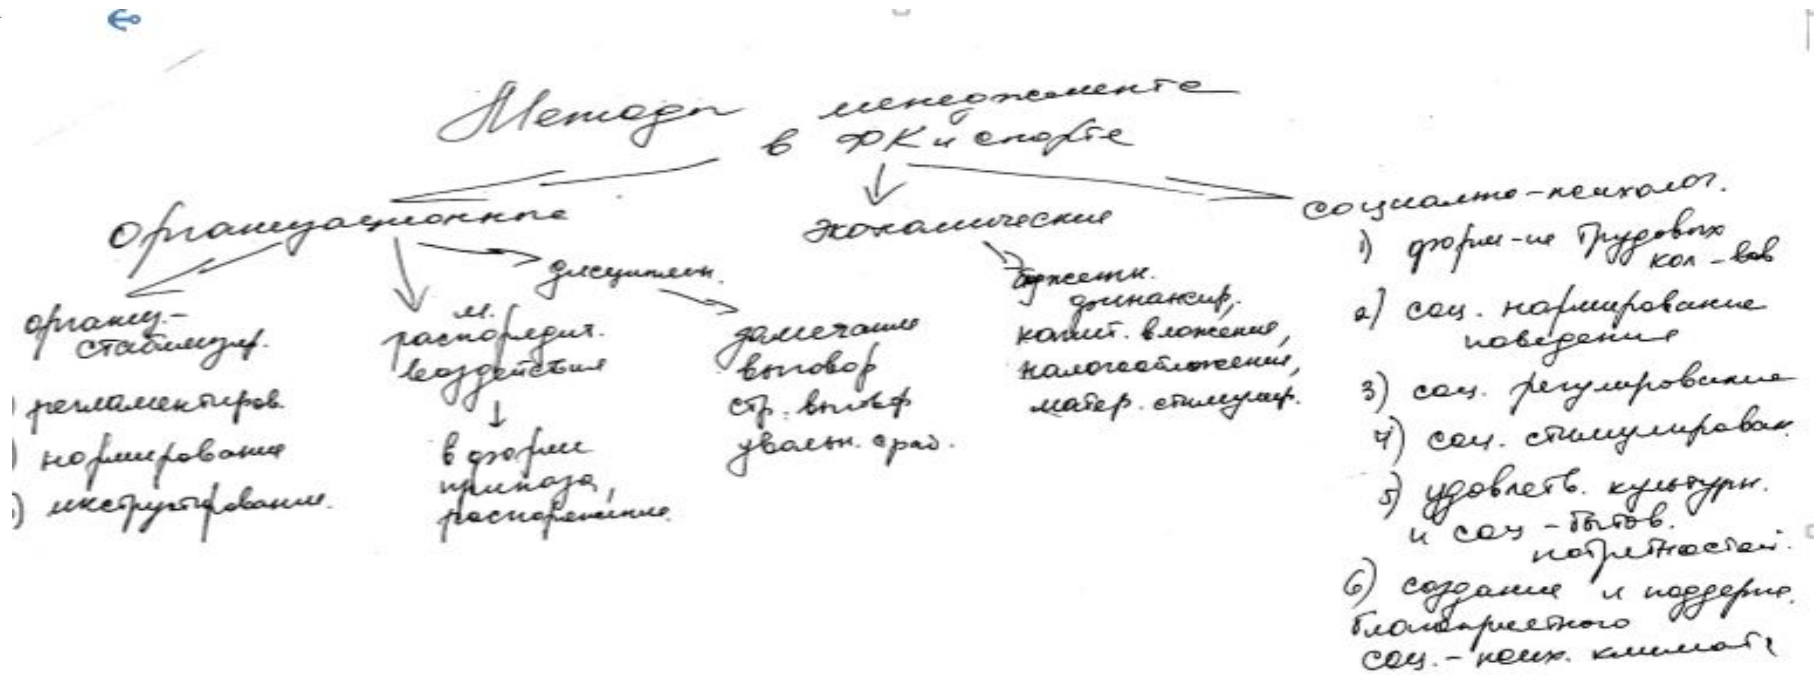 Методы менеджмента
в ФК и спорте
Организационные
экономические
социально-психолог.
органиц.-
стабилизир.
) регламентиров.
) нормирование
) инструктирование.
м.
распорядит.
воздействия
в форме
приказа,
распоряжение.
дисциплин.
замечание
выговор
стр. выговор
увольн. с раб.
бюджетн.
финансир.,
капит. вложение,
налогообложение,
матер. стимулир.
1) форм-ие трудовых
кол-вов
2) соц. нормирование
поведения
3) соц. регулирование
4) соц. стимулирован.
5) удовлетв. культурн.
и соц-бытов.
потребностей.
6) создание и поддерж.
благоприятного
соц.-псих. климата